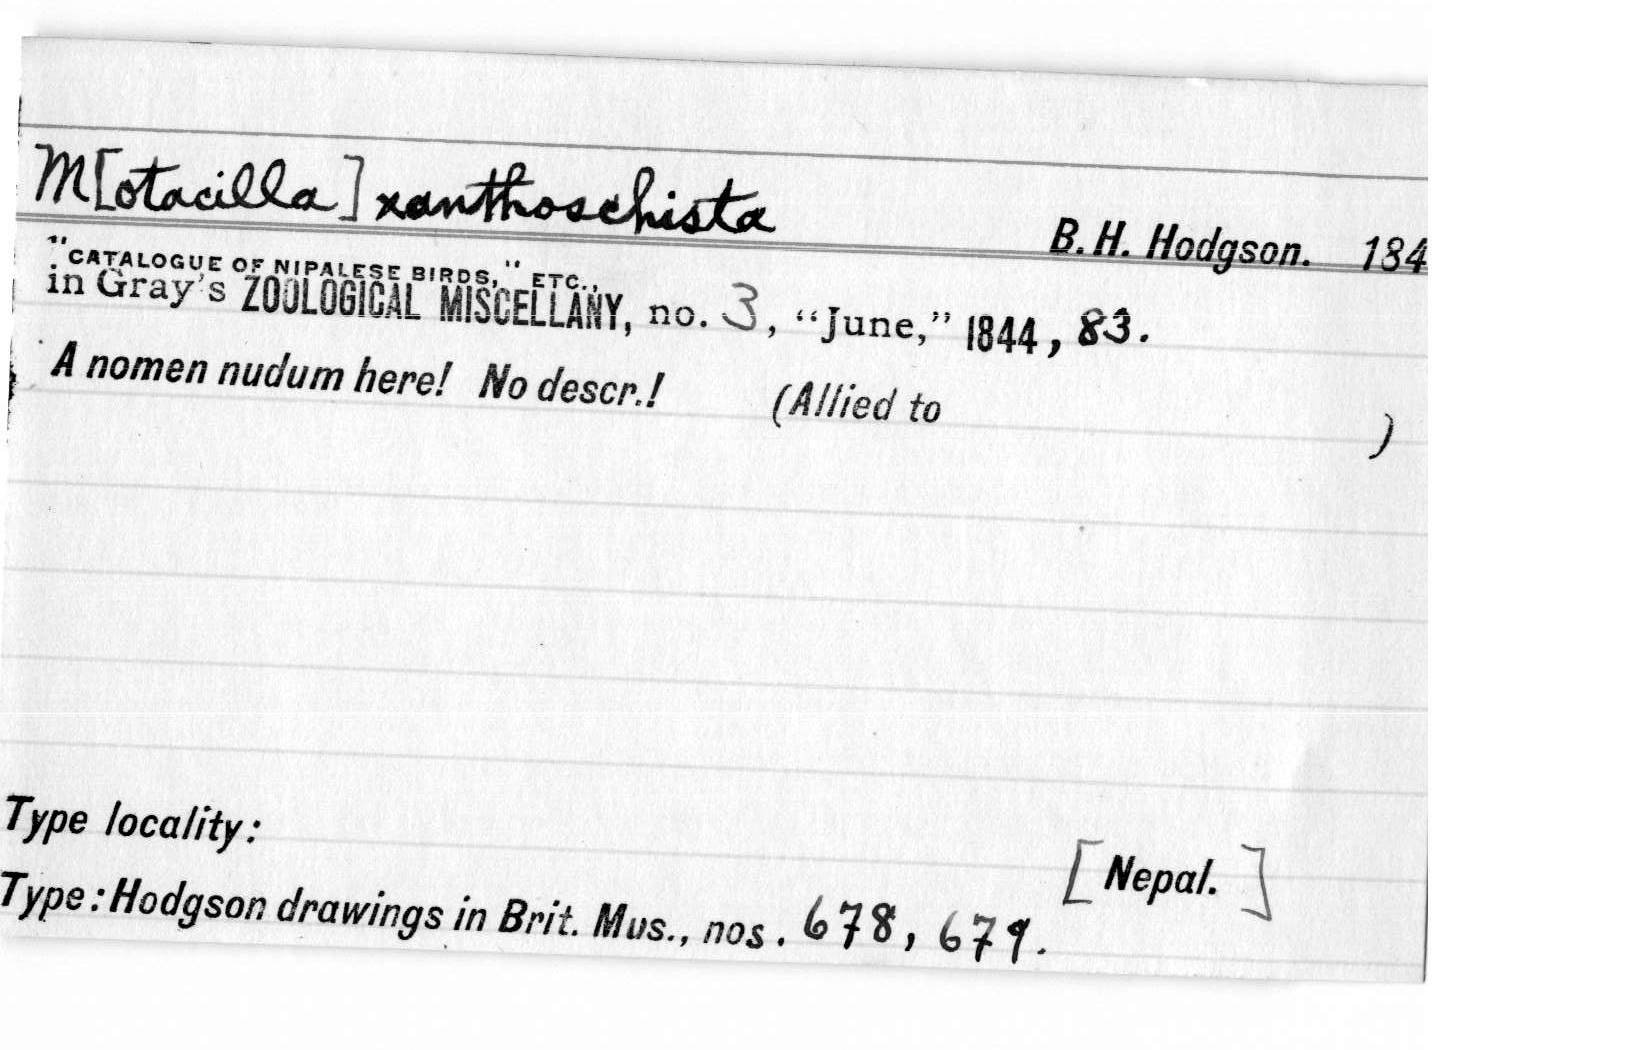 M[otacilla] xanthoschista
B. H. Hodgson. 184
"CATALOGUE OF NIPALESE BIRDS," ETC.,
in Gray's ZOOLOGICAL MISCELLANY, no. 3, "June," 1844, 83.
A nomen nudum here! No descr.! (Allied to )
Type locality: [Nepal.]
Type: Hodgson drawings in Brit. Mus., nos. 678, 679.